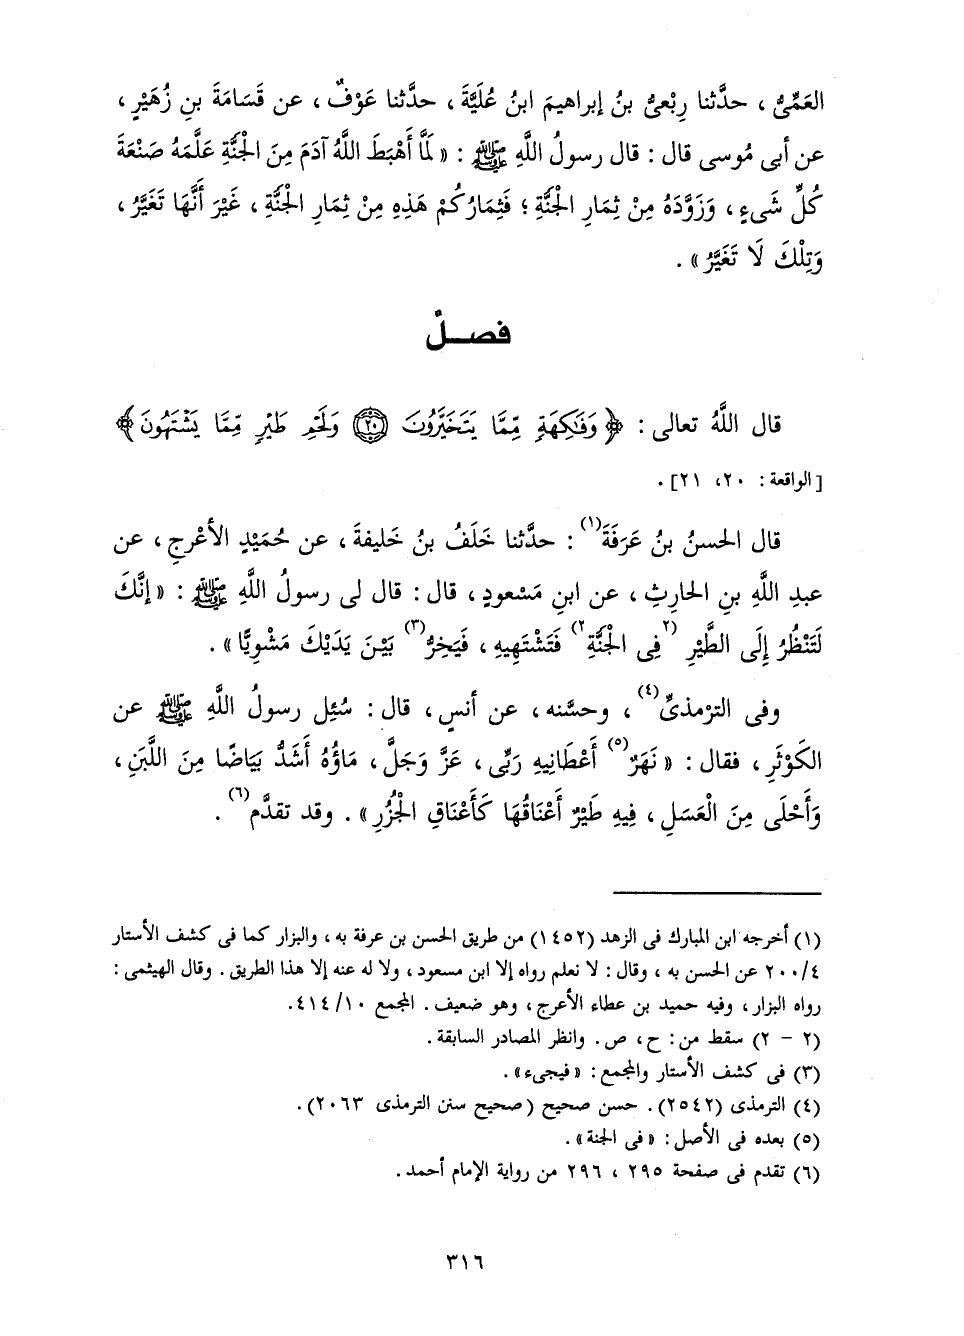 العَمِّىُّ ، حدَّثنا رِبْعىُّ بنُ إبراهيمَ ابنُ عُلَيَّةَ ، حدَّثنا عَوْفٌ ، عن قَسَامَةَ بنِ زُهَيْرٍ ،
عن أبى مُوسى قال : قال رسولُ اللَّهِ ﷺ : « لَمَّا أَهْبَطَ اللَّهُ آدَمَ مِنَ الْجَنَّةِ عَلَّمَهُ صَنْعَةَ
كُلِّ شَىءٍ ، وَزَوَّدَهُ مِنْ ثِمَارِ الْجَنَّةِ ؛ فَثِمَارُكُمْ هَذِهِ مِنْ ثِمَارِ الْجَنَّةِ ، غَيْرَ أَنَّهَا تَغَيَّرُ ،
وَتِلْكَ لَا تَغَيَّرُ » .
فصـــلٌ
قال اللَّهُ تعالى : ﴿ وَفَٰكِهَةٍ مِّمَّا يَتَخَيَّرُونَ ۝٢٠ وَلَحْمِ طَيْرٍ مِّمَّا يَشْتَهُونَ ﴾
[الواقعة : ٢٠، ٢١] .
قال الحسنُ بنُ عَرَفَةَ(١) : حدَّثنا خَلَفُ بنُ خَليفةَ ، عن حُمَيْدٍ الأعْرجِ ، عن
عبدِ اللَّهِ بنِ الحارثِ ، عن ابنِ مَسْعودٍ ، قال : قال لى رسولُ اللَّهِ ﷺ : « إنَّكَ
لَتَنْظُرُ إِلَى الطَّيْرِ (٢فِى الْجَنَّةِ٢) فَتَشْتَهِيهِ ، فَيَخِرُّ(٣) بَيْنَ يَدَيْكَ مَشْوِيًّا » .
وفى الترْمذىِّ(٤) ، وحسَّنه ، عن أنسٍ ، قال : سُئِل رسولُ اللَّهِ ﷺ عن
الكَوْثَرِ ، فقال : « نَهَرٌ(٥) أَعْطَانِيهِ رَبِّى ، عَزَّ وَجَلَّ ، مَاؤُهُ أَشَدُّ بَيَاضًا مِنَ اللَّبَنِ ،
وَأَحْلَى مِنَ الْعَسَلِ ، فِيهِ طَيْرٌ أَعْنَاقُهَا كَأَعْنَاقِ الْجُزُرِ » . وقد تقدَّم(٦) .
(١) أخرجه ابن المبارك فى الزهد (١٤٥٢) من طريق الحسن بن عرفة به ، والبزار كما فى كشف الأستار
٢٠٠/٤ عن الحسن به ، وقال : لا نعلم رواه إلا ابن مسعود ، ولا له عنه إلا هذا الطريق . وقال الهيثمى :
رواه البزار ، وفيه حميد بن عطاء الأعرج ، وهو ضعيف . المجمع ٤١٤/١٠.
(٢ – ٢) سقط من : ح ، ص . وانظر المصادر السابقة .
(٣) فى كشف الأستار والمجمع : « فيجىء » .
(٤) الترمذى (٢٥٤٢) . حسن صحيح (صحيح سنن الترمذى ٢٠٦٣) .
(٥) بعده فى الأصل : « فى الجنة » .
(٦) تقدم فى صفحة ٢٩٥ ، ٢٩٦ من رواية الإمام أحمد .
٣١٦